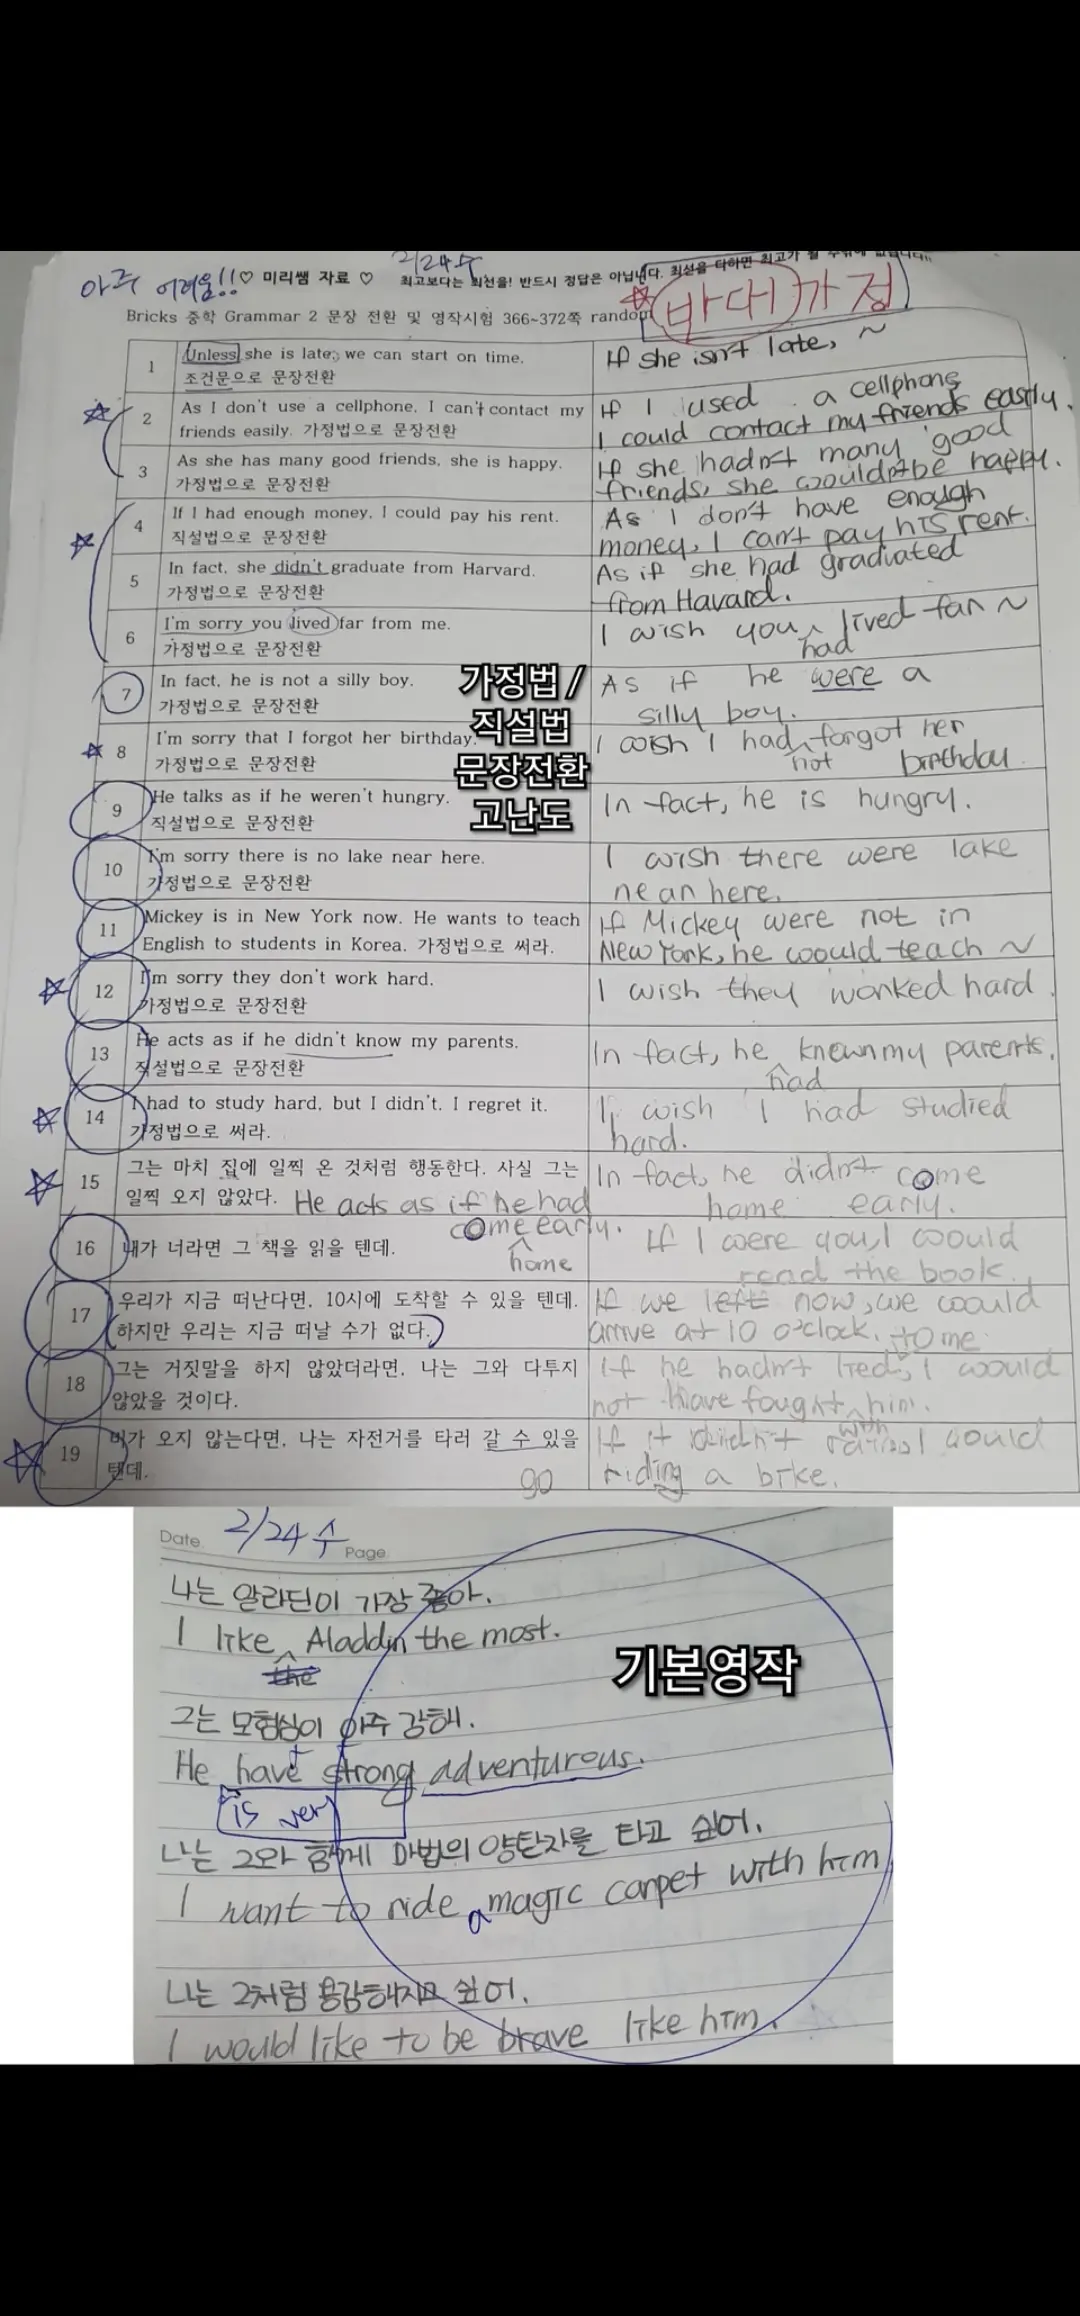 2/24 수
아주 어려움!! ♡ 미리쌤 자료 ♡ 최고보다는 최선을! 반드시 정답은 아닙니다. 최선을 다하면 최고가 될
반대가정
Bricks 중학 Grammar 2 문장 전환 및 영작시험 366~372쪽 random
1
Unless she is late, we can start on time.
조건문으로 문장전환
If she isn't late, ~
2
As I don't use a cellphone, I can't contact my
friends easily. 가정법으로 문장전환
If I used a cellphone
I could contact my friends easily.
3
As she has many good friends, she is happy.
가정법으로 문장전환
If she hadn't many good
friends, she wouldn't be happy.
4
If I had enough money, I could pay his rent.
직설법으로 문장전환
As I don't have enough
money, I can't pay his rent.
5
In fact, she didn't graduate from Harvard.
가정법으로 문장전환
As if she had graduated
from Havard.
6
I'm sorry you lived far from me.
가정법으로 문장전환
I wish you lived far ~
had
7
In fact, he is not a silly boy.
가정법으로 문장전환
As if he were a
silly boy.
8
I'm sorry that I forgot her birthday.
가정법으로 문장전환
I wish I had forgot her
not birthday.
가정법 /
직설법
문장전환
고난도
9
He talks as if he weren't hungry.
직설법으로 문장전환
In fact, he is hungry.
10
I'm sorry there is no lake near here.
가정법으로 문장전환
I wish there were lake
near here.
11
Mickey is in New York now. He wants to teach
English to students in Korea. 가정법으로 써라.
If Mickey were not in
New York, he would teach ~
12
I'm sorry they don't work hard.
가정법으로 문장전환
I wish they worked hard.
13
He acts as if he didn't know my parents.
직설법으로 문장전환
In fact, he known my parents.
had
14
I had to study hard, but I didn't. I regret it.
가정법으로 써라.
I wish I had studied
hard.
15
그는 마치 집에 일찍 온 것처럼 행동한다. 사실 그는
일찍 오지 않았다. He acts as if he had
come early.
home
In fact, he didn't come
home early.
16
내가 너라면 그 책을 읽을 텐데.
If I were you, I would
read the book.
17
우리가 지금 떠난다면, 10시에 도착할 수 있을 텐데.
(하지만 우리는 지금 떠날 수가 없다.)
If we left now, we could
arrive at 10 o'clock.
18
그는 거짓말을 하지 않았더라면, 나는 그와 다투지
않았을 것이다.
to me
If he hadn't lied, I would
not have fought him.
with
19
비가 오지 않는다면, 나는 자전거를 타러 갈 수 있을
텐데.
go
If it didn't I could
riding a bike.
Date 2/24 수
Page
나는 알라딘이 가장 좋아.
I like Aladdin the most.
the
기본영작
그는 모험심이 아주 강해.
He have strong adventurous.
is very
나는 그와 함께 마법의 양탄자를 타고 싶어.
I want to ride a magic carpet with him
나는 그처럼 용감해지고 싶어.
I would like to be brave like him.